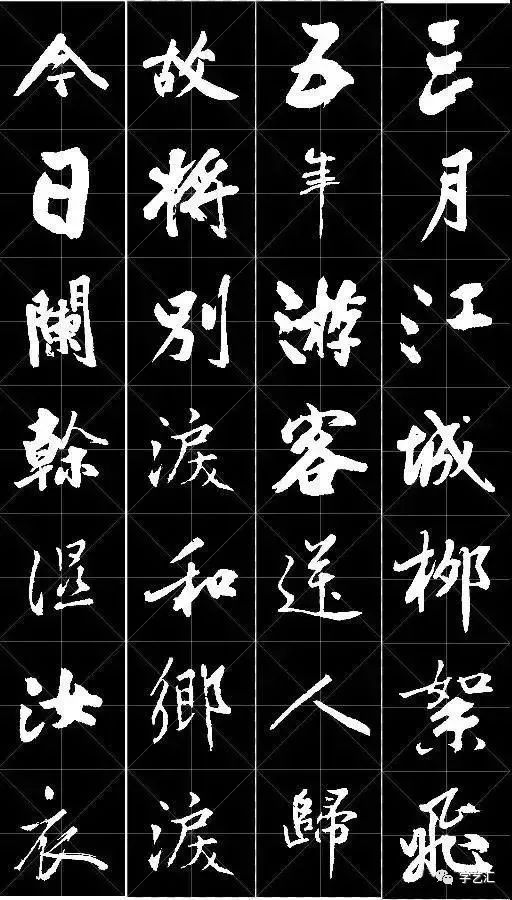 三月江城柳絮飛
五年游客送人歸
故將別淚和鄉淚
今日闌幹濕汝衣
学艺汇